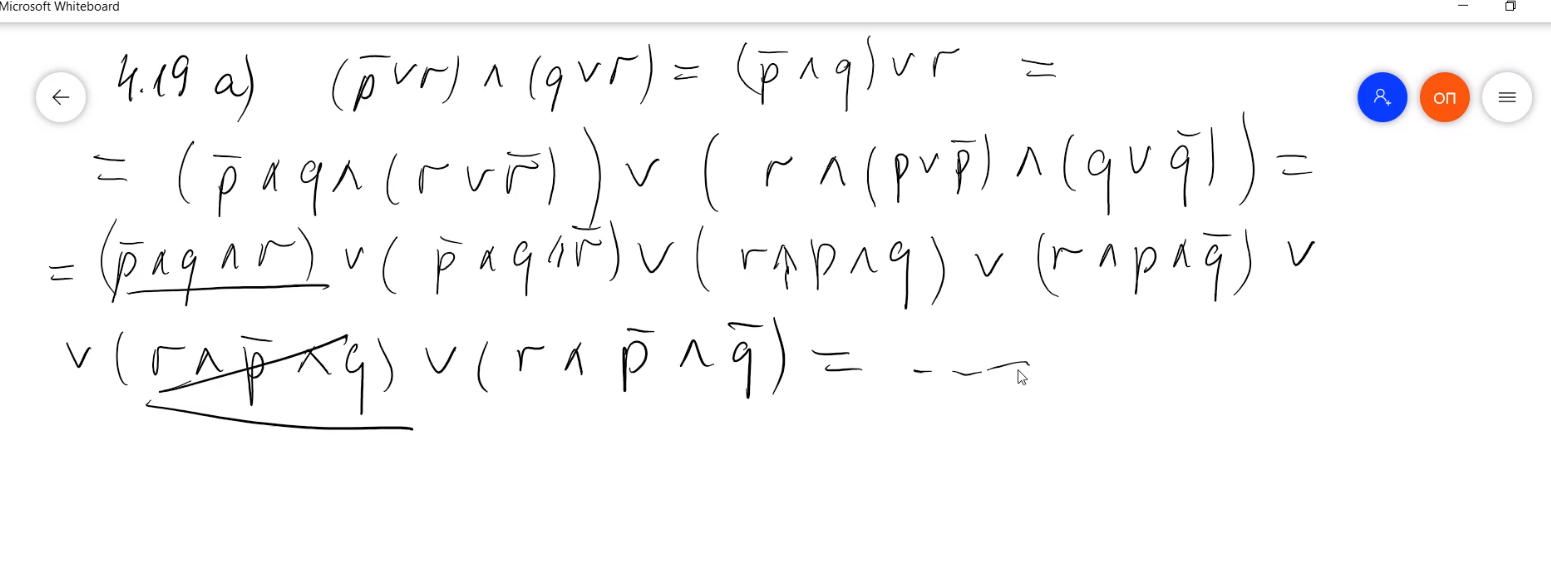 Microsoft Whiteboard
4.19 a) (p̅ ∨ r) ∧ (q ∨ r) = (p̅ ∧ q) ∨ r =
оп
= (p̅ ∧ q ∧ (r ∨ r̅)) ∨ (r ∧ (p ∨ p̅) ∧ (q ∨ q̅)) =
= (p̅ ∧ q ∧ r) ∨ (p̅ ∧ q ∧ r̅) ∨ (r ∧ p ∧ q) ∨ (r ∧ p ∧ q̅) ∨
∨ (r ∧ p̅ ∧ q) ∨ (r ∧ p̅ ∧ q̅) = ---